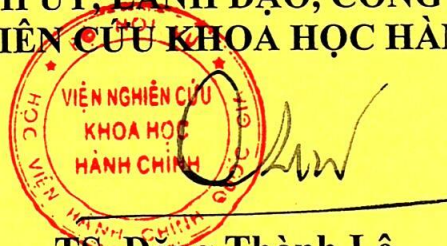 LÃNH ĐẠO, CÔNG
CỨU KHOA HỌC HÀN
VIỆN NGHIÊN CỨU
KHOA HỌC
HÀNH CHÍNH
HỌC VIỆN HÀNH CHÍNH QUỐC GIA
TS. Đặng Thành Lê